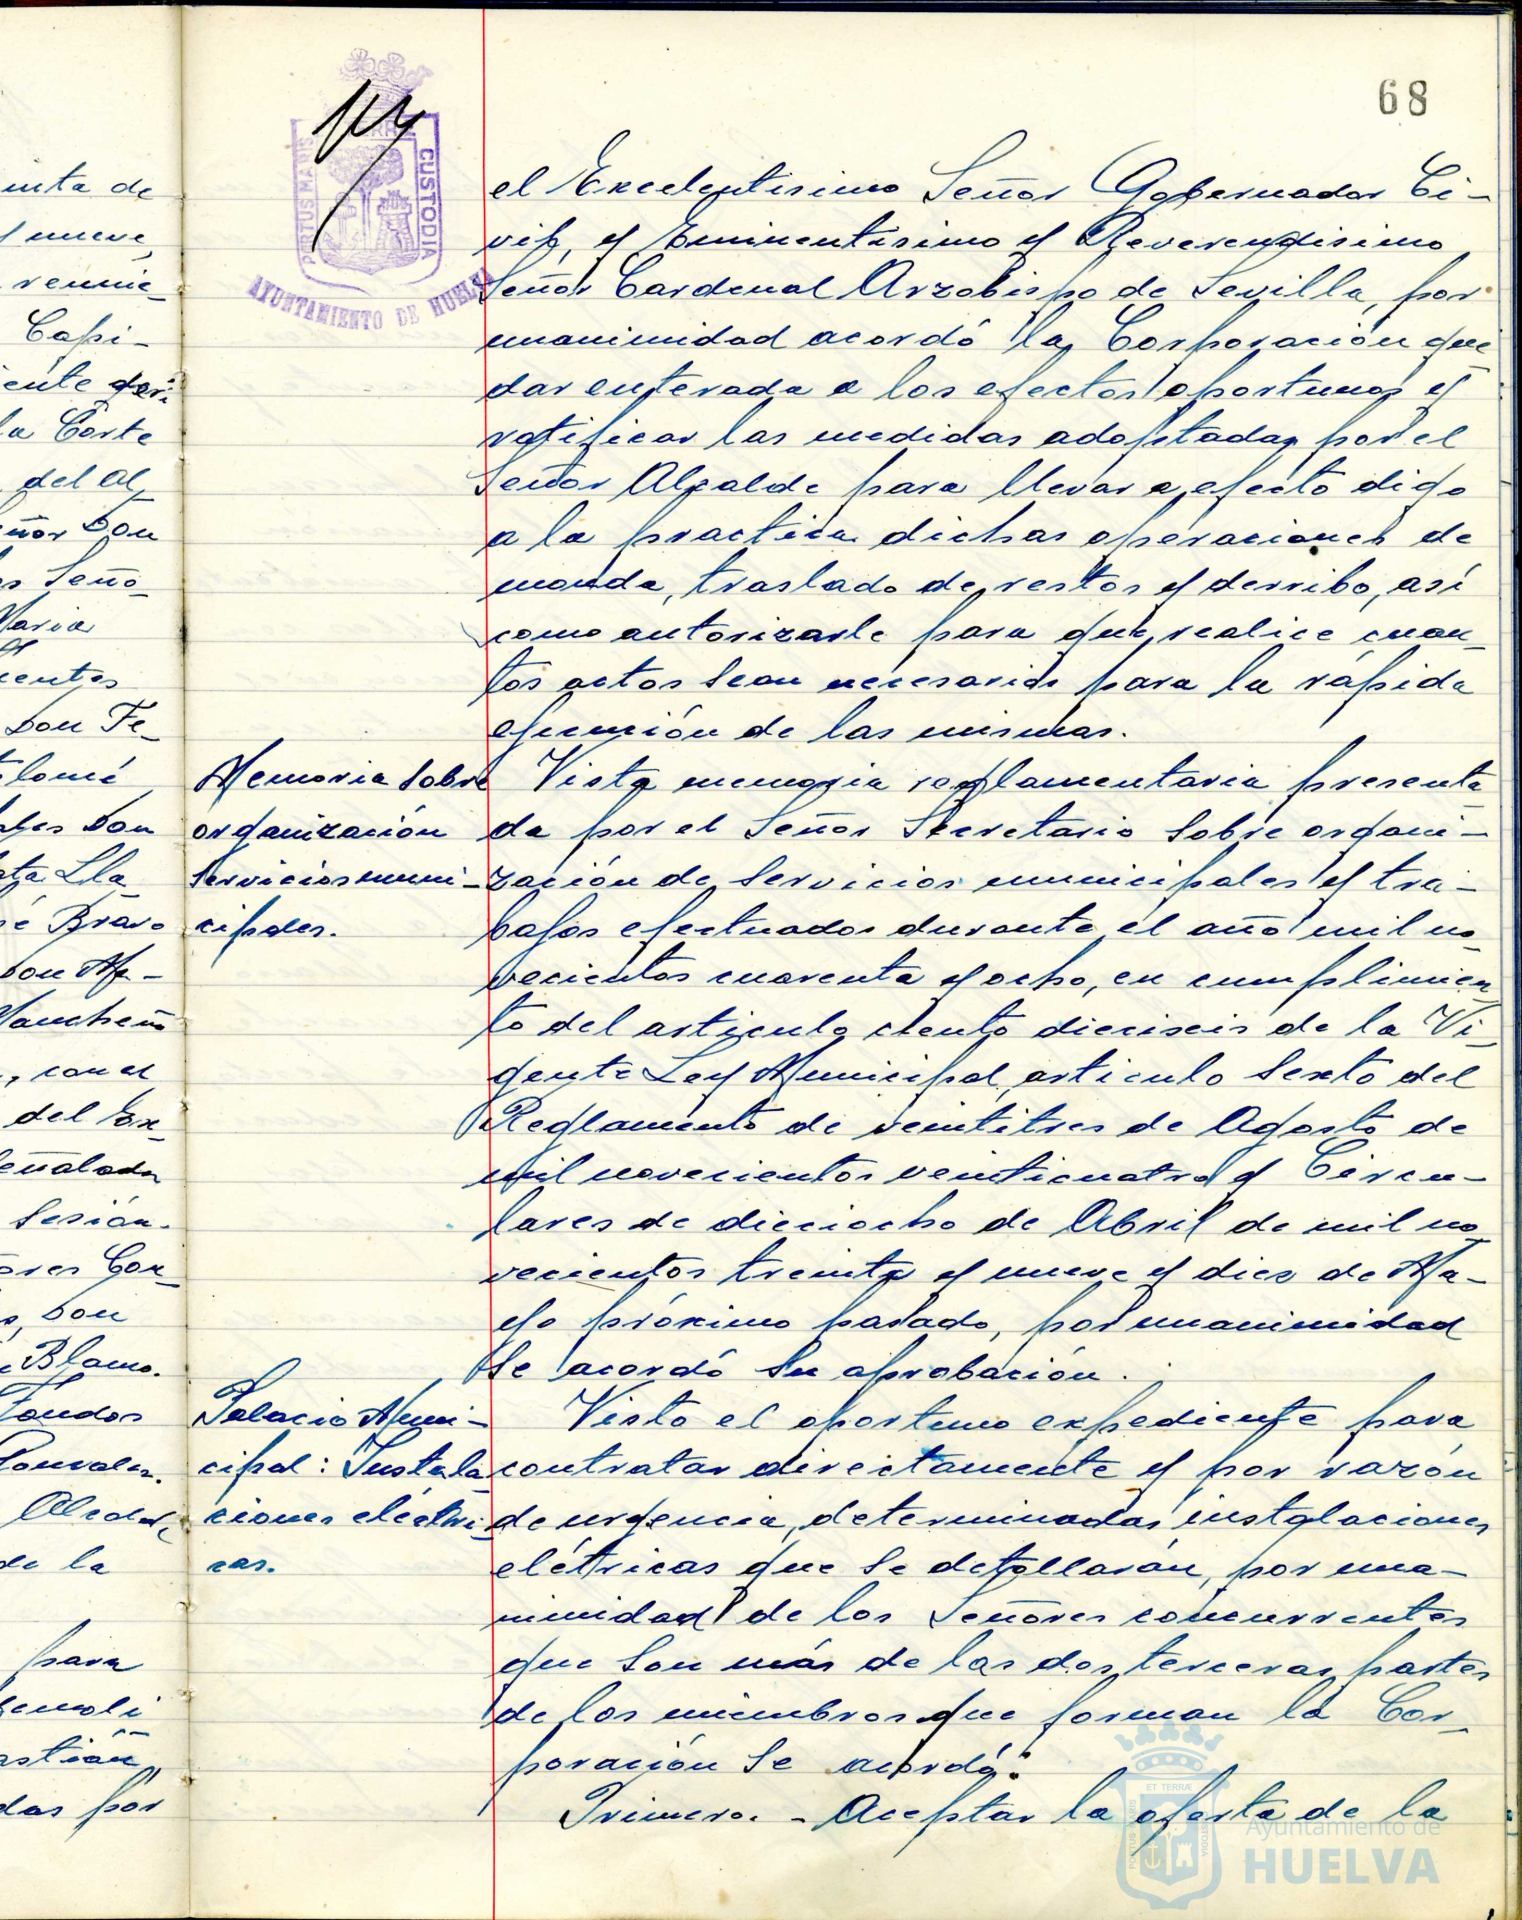 68
PORTUS MARIS
TERRÆ
CUSTODIA
AYUNTAMIENTO DE HUELVA
el Excelentisimo Señor Gobernador Ci-
vil, y Eminentisimo y Reverendisimo
Señor Cardenal Arzobispo de Sevilla, por
unanimidad acordó la Corporación que
dar enterada a los efectos oportunos y
ratificar las medidas adoptadas por el
Señor Alcalde para llevar a efecto digo
a la practica dichas operaciones de
monda, traslado de restos y derribo, así
como autorizarle para que realice cuan_
tos actos sean necesarios para la rápida
ejecución de las mismas.
Memoria sobre
organización
servicios muni-
cipales.
Vista memoria reglamentaria presenta_
da por el Señor Secretario sobre organi-
zación de servicios municipales y tra-
bajos efectuados durante el año mil no_
vecientos cuarenta y ocho, en cumplimien_
to del articulo ciento dieciseis de la Vi_
gente Ley Municipal, articulo sexto del
Reglamento de veintitres de Agosto de
mil novecientos veinticuatro y Circu-
lares de dieciocho de Abril de mil no_
vecientos treinta y nueve y diez de Ma-
yo próximo pasado, por unanimidad
se acordó su aprobación.
Palacio Muni-
cipal: Instala_
ciones eléctri-
cas.
Visto el oportuno expediente para
contratar directamente y por razón
de urgencia, determinadas instalaciones
elétricas que se detallarán, por una-
nimidad de los Señores concurrentes
que son más de las dos terceras partes
de los miembros que forman la Cor_
poración se acordó:
Primero. - Aceptar la oferta de la
unta de
y nueve,
reunie_
Capi-
la Corte
del Al_
eñor Don
os Seño_
Maria
ientes
Don Fe_
tolomé
ales Don
ata Lla_
sé Bravo
Don Ma-
Mancheño
, con el
del Ex_
eñalada
sesión.
ores Con_
s, Don
Blanco.
Fondos
Gonzalez.
de la
para
demoli
astián,
das por
Ayuntamiento de
HUELVA